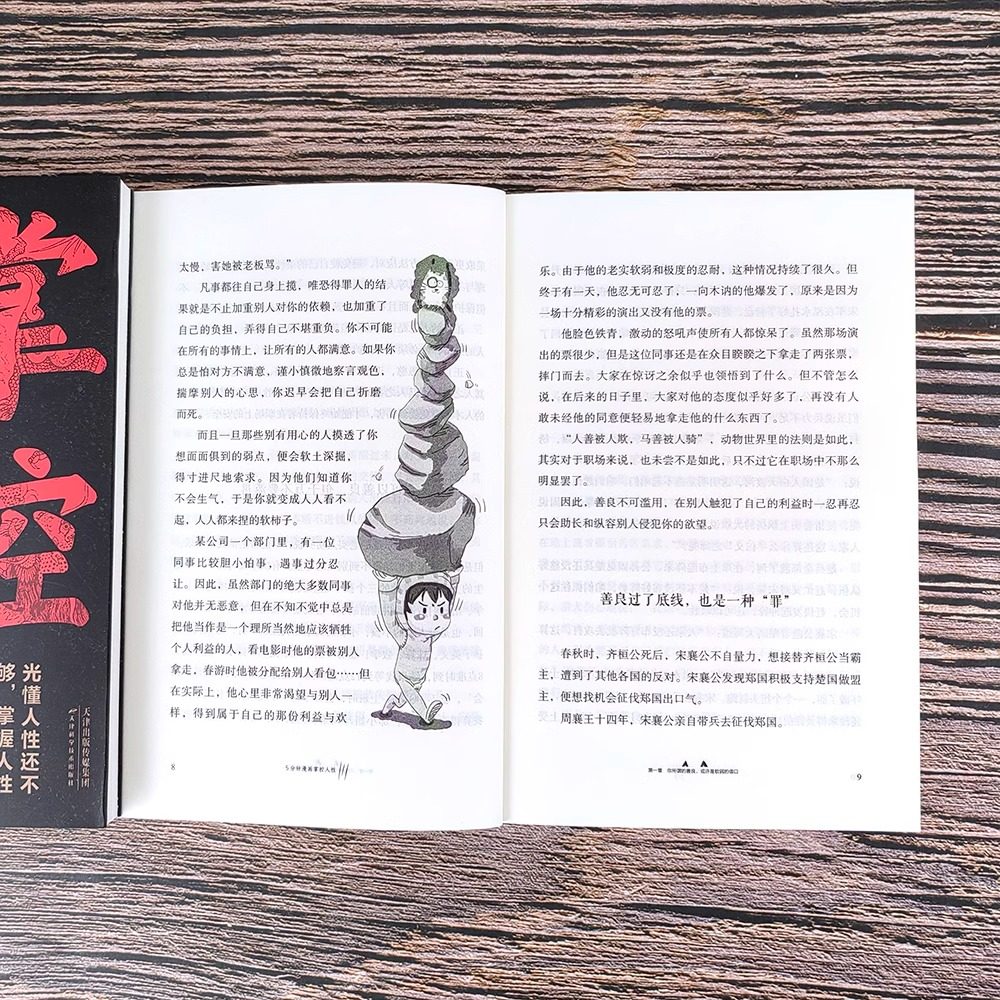 掌
控
光懂人性还不
够，掌握人性
天津出版传媒集团
天津科学技术出版社
太慢，害她被老板骂。”
凡事都往自己身上揽，唯恐得罪人的结
果就是不止加重别人对你的依赖，也加重了
自己的负担，弄得自己不堪重负。你不可能
在所有的事情上，让所有的人都满意。如果你
总是怕对方不满意，谨小慎微地察言观色，
揣摩别人的心思，你迟早会把自己折磨
而死。
而且一旦那些别有用心的人摸透了你
想面面俱到的弱点，便会软土深掘，
得寸进尺地索求。因为他们知道你
不会生气，于是你就变成人人看不
起，人人都来捏的软柿子。
某公司一个部门里，有一位
同事比较胆小怕事，遇事过分忍
让。因此，虽然部门的绝大多数同事
对他并无恶意，但在不知不觉中总是
把他当作是一个理所当然地应该牺牲
个人利益的人，看电影时他的票被别人
拿走，春游时他被分配给别人看包……但
在实际上，他心里非常渴望与别人一
样，得到属于自己的那份利益与欢
8
5分钟漫画掌控人性
乐。由于他的老实软弱和极度的忍耐，这种情况持续了很久。但
终于有一天，他忍无可忍了，一向木讷的他爆发了，原来是因为
一场十分精彩的演出又没有他的票。
他脸色铁青，激动的怒吼声使所有人都惊呆了。虽然那场演
出的票很少，但是这位同事还是在众目睽睽之下拿走了两张票，
摔门而去。大家在惊讶之余似乎也领悟到了什么。但不管怎么
说，在后来的日子里，大家对他的态度似乎好多了，再没有人
敢未经他的同意便轻易地拿走他的什么东西了。
“人善被人欺，马善被人骑”，动物世界里的法则是如此，
其实对于职场来说，也未尝不是如此，只不过它在职场中不那么
明显罢了。
因此，善良不可滥用，在别人触犯了自己的利益时一忍再忍
只会助长和纵容别人侵犯你的欲望。
善良过了底线，也是一种“罪”
春秋时，齐桓公死后，宋襄公不自量力，想接替齐桓公当霸
主，遭到了其他各国的反对。宋襄公发现郑国积极支持楚国做盟
主，便想找机会征伐郑国出口气。
周襄王十四年，宋襄公亲自带兵去征伐郑国。
第一章 你所谓的善良，或许是软弱的借口
9